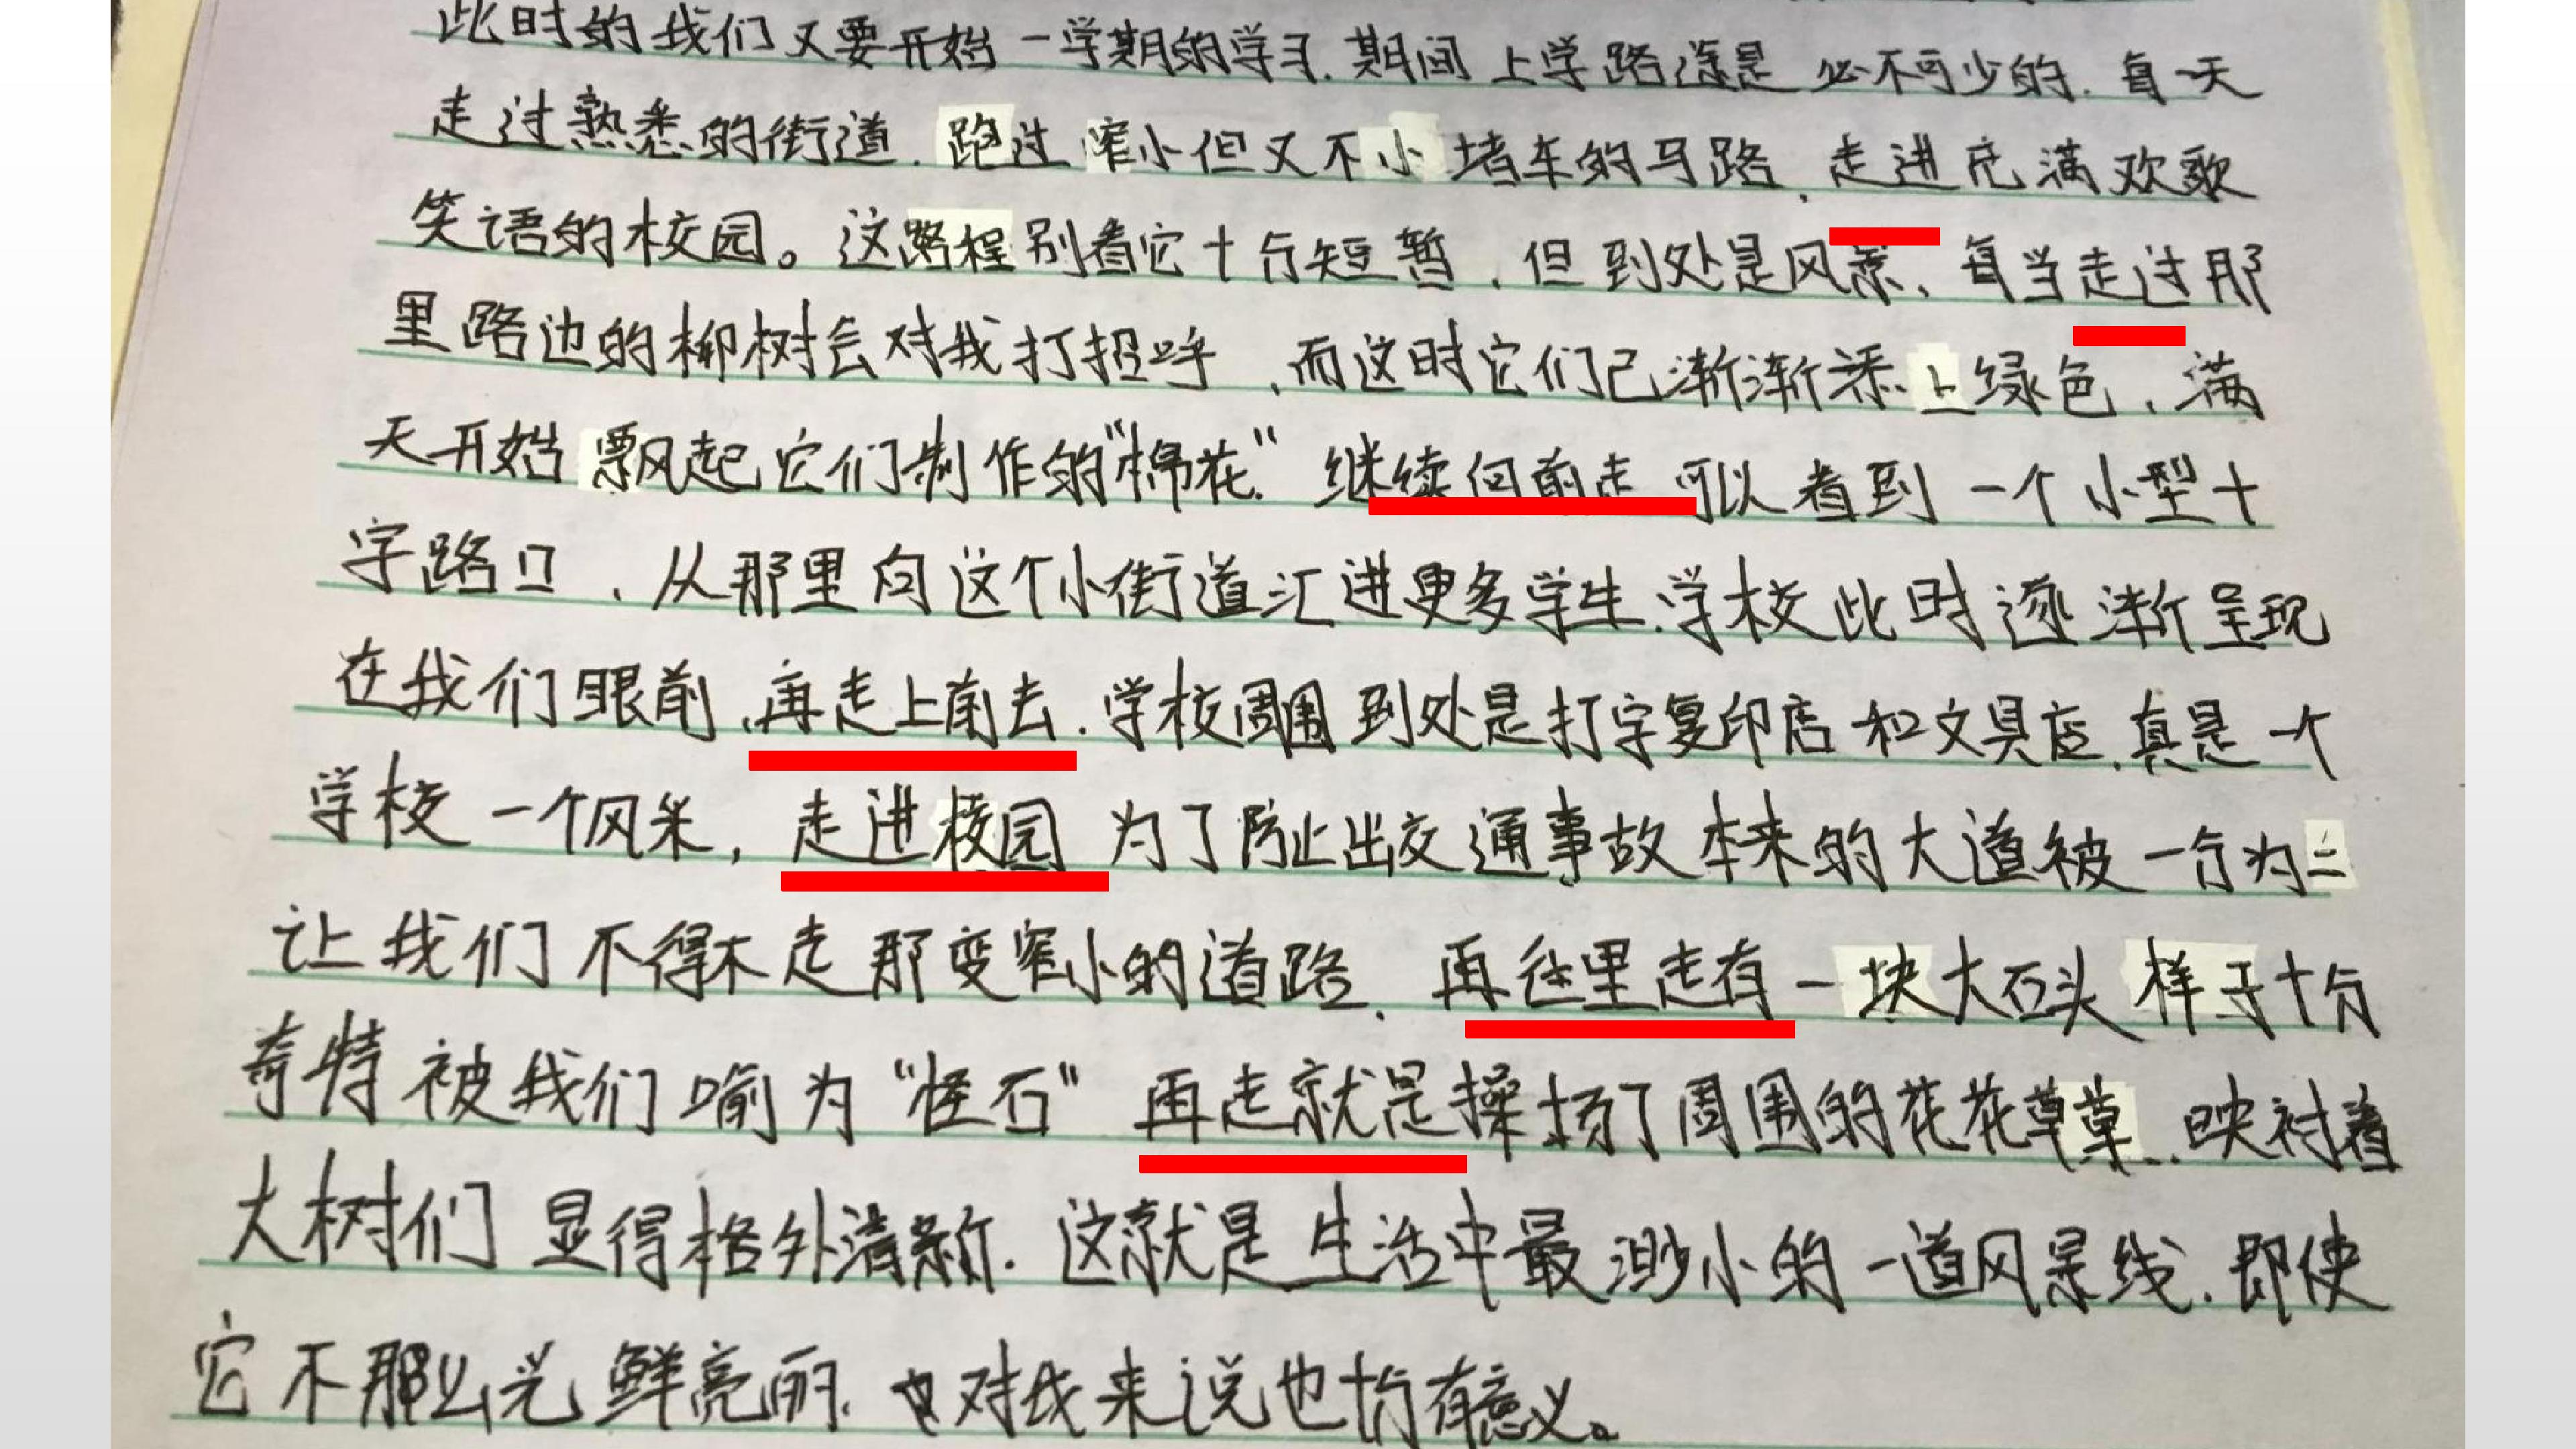 此时的我们又要开始一学期的学习.期间上学路途是必不可少的.每一天
走过熟悉的街道.跑过窄小但又不小堵车的马路、走进充满欢歌
笑语的校园。这路程别看它十分短暂.但到处是风景、每当走过那
里路边的柳树会对我打招呼,而这时它们已渐渐添上绿色.满
天开始飘起它们制作的"棉花."继续向前走可以看到一个小型十
字路口、从那里向这个小街道汇进更多学生.学校此时逐渐呈现
在我们眼前、再走上前去.学校周围到处是打字复印店和文具店.真是一个
学校一个风采,走进校园为了防止出交通事故本来的大道被一分为二
让我们不得不走那变窄小的道路.再往里走有一块大石头样子十分
奇特被我们喻为"怪石"再走就是操场了周围的花花草草..映衬着
大树们显得格外清新.这就是生活中最渺小的一道风景线.即使
它不那么光鲜亮丽.对我来说也十分有意义。